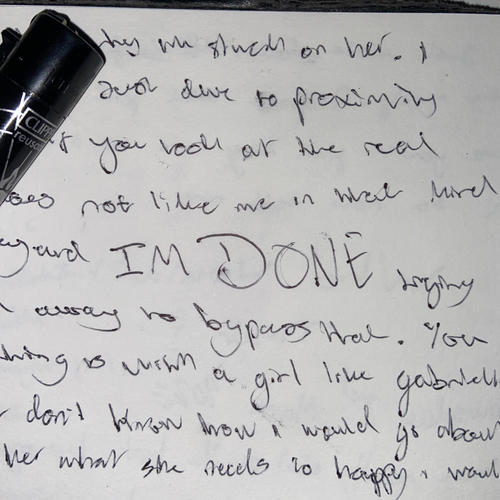 why im stuck on her. I
just due to proximity
if you look at the real
does not like me in that kind
regard IM DONE trying
a away to bypass that. You
thing is with a girl like gabriell
I don't know how i would go about
her what she needs to happy i woul
CLIPP
reusa